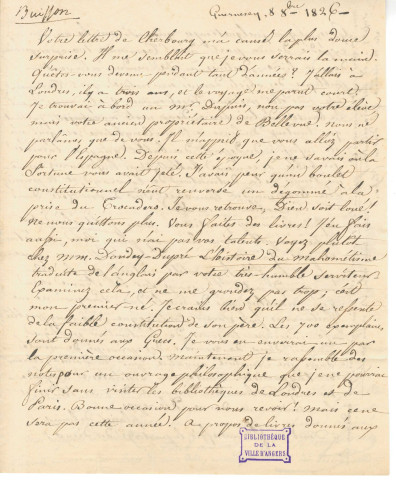 Buisson
Guernesey, 8 8bre 1826 —
Votre lettre de Cherbourg m'a causé la plus douce
surprise. Il me semblait que je vous serrais la main.
Qu'êtes-vous devenu pendant tant d'années? J'allais à
Londres, il y a trois ans, et le voyage me parut court.
Je trouvai à bord un Mr. Dupuis, non pas votre élève
mais votre ancien propriétaire de Bellevue. Nous ne
parlâmes que de vous. Il m'apprit que vous alliez partir
pour l'Espagne. Depuis cette époque, je ne savais où la
fortune vous avait jeté. J'avais peur qu'un boulet
constitutionnel n'eût renversé un dégommé à la
prise du Trocadero. Je vous retrouve, Dieu soit loué!
ne nous quittons plus. Vous faites des livres! J'en fais
aussi, moi qui n'ai pas vos talents. Voyez plutôt
chez MM. Dondey-Dupré l'histoire du Mahométisme
traduite de l'anglais par votre très-humble serviteur.
Examinez cela, et ne me grondez pas trop; c'est
mon premier né. Je crains bien qu'il ne se ressente
de la faible constitution de son père. Les 700 exemplaires
sont donnés aux Grecs. Je vous en enverrai un par
la première occasion. Maintenant je rassemble des
notes pour un ouvrage philosophique que je ne pourrai
finir sans visiter les bibliothèques de Londres et de
Paris. Bonne occasion pour nous revoir! mais ce ne
sera pas cette année. A propos de livres donnés aux
BIBLIOTHÈQUE
DE LA
VILLE D'ANGERS